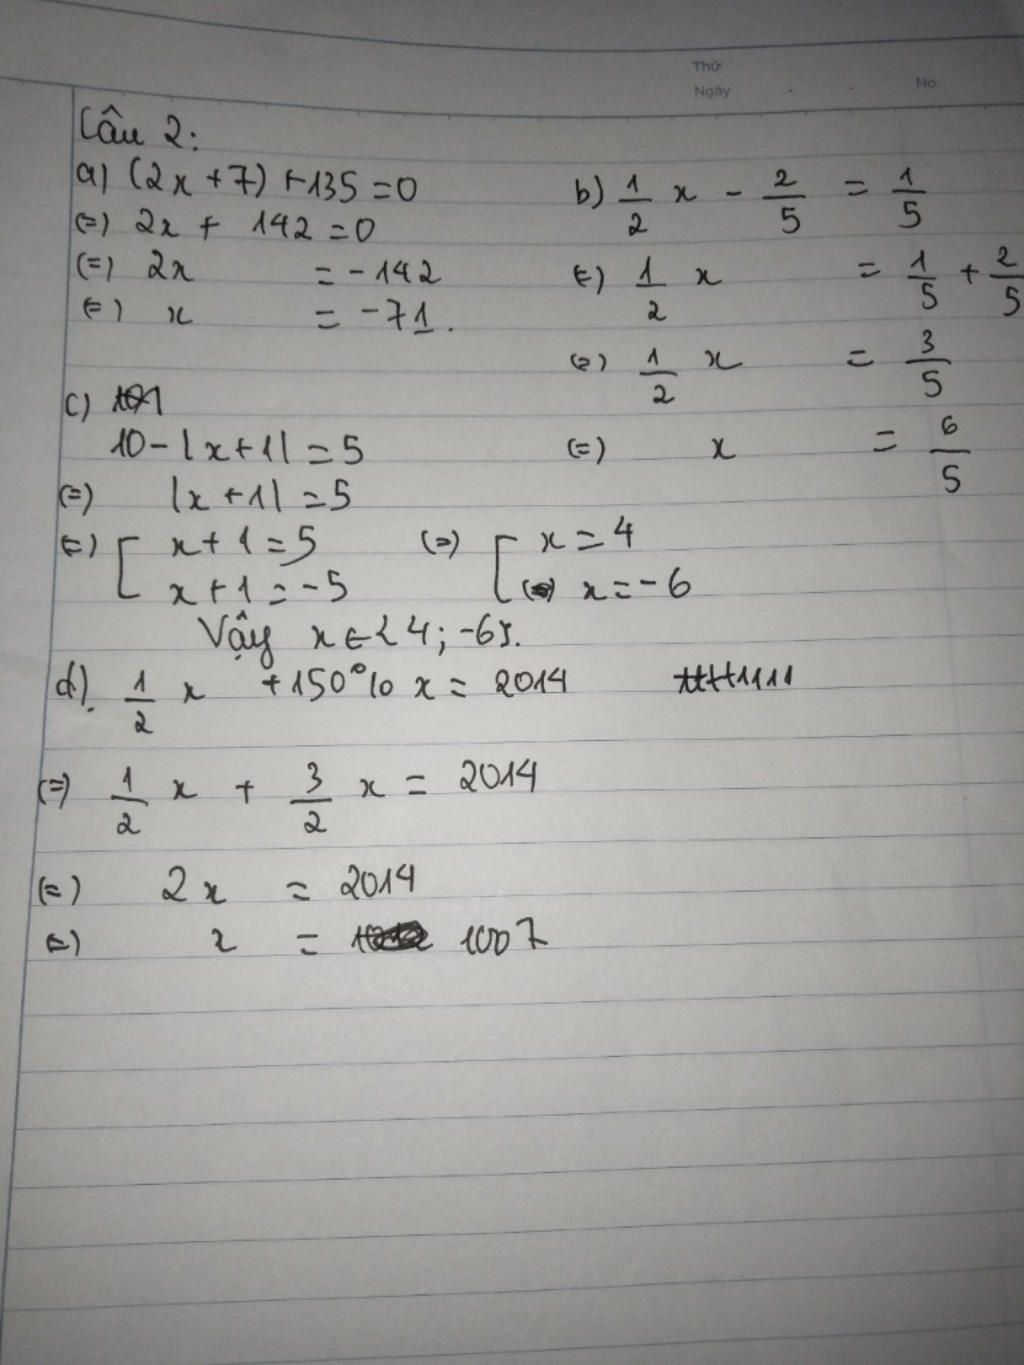 Thứ
Ngày
No.
Câu 2:
a) (2x+7) +135 = 0
(=) 2x + 142 = 0
(=) 2x = -142
(=) x = -71.
b) 1/2 x - 2/5 = 1/5
(=) 1/2 x = 1/5 + 2/5
(=) 1/2 x = 3/5
(=) x = 6/5
c)
10 - |x+1| = 5
(=) |x+1| = 5
(=) [ x+1 = 5 (=) [ x = 4
x+1 = -5 x = -6
Vậy x ∈ {4; -6}.
d). 1/2 x + 150% x = 2014
(=) 1/2 x + 3/2 x = 2014
(=) 2x = 2014
(=) x = 1007